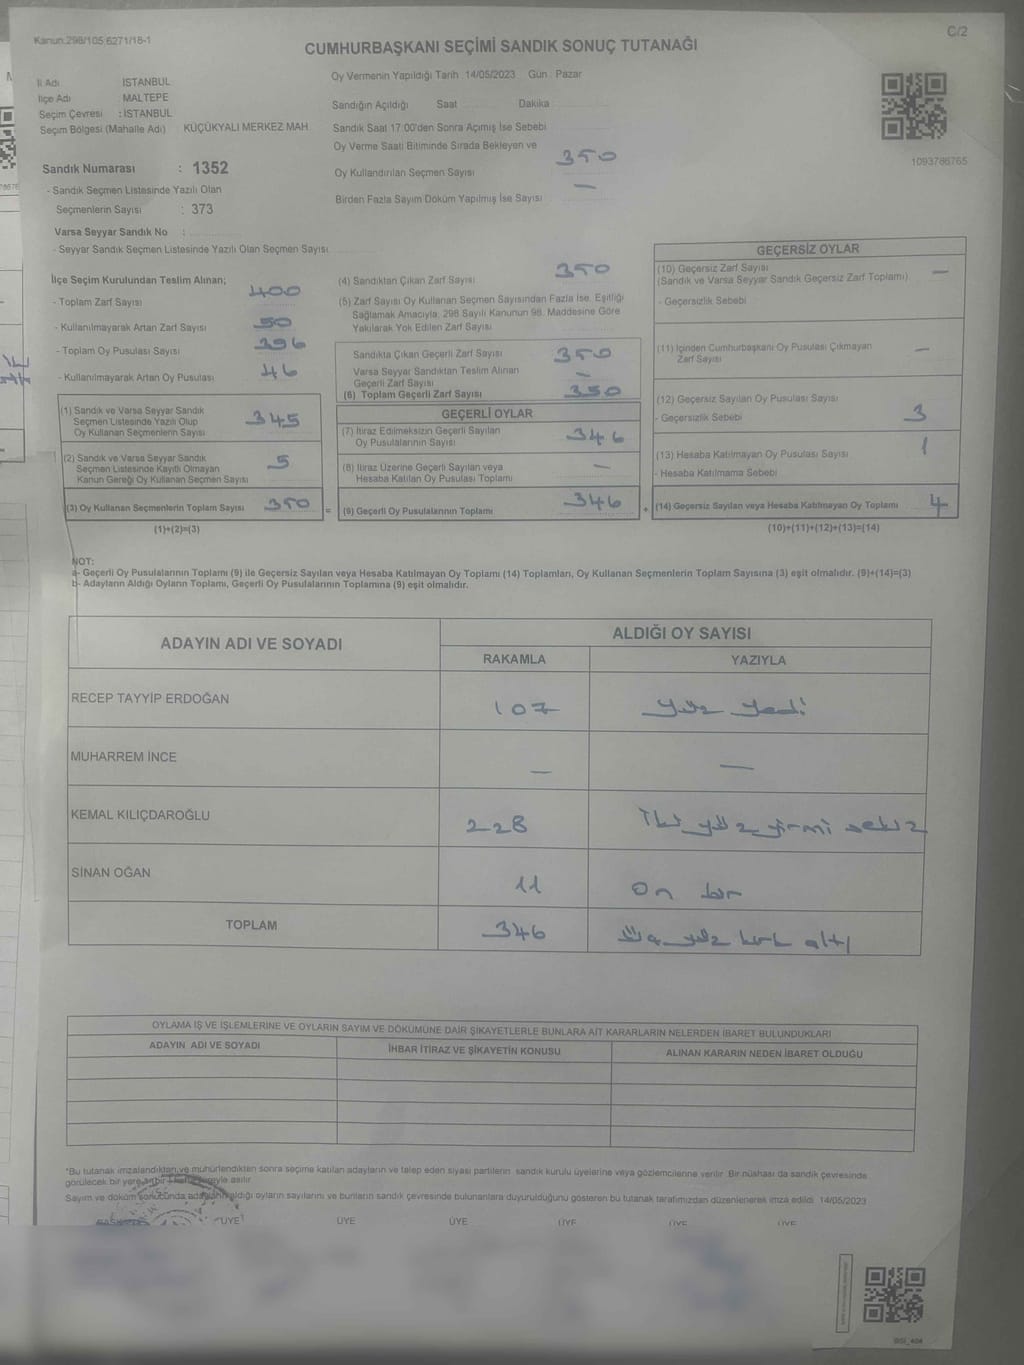 Kanun.298/105 6271/18-1
C/2
CUMHURBAŞKANI SEÇİMİ SANDIK SONUÇ TUTANAĞI
İl Adı İSTANBUL
İlçe Adı : MALTEPE
Seçim Çevresi : İSTANBUL
Seçim Bölgesi (Mahalle Adı) KÜÇÜKYALI MERKEZ MAH
Sandık Numarası : 1352
- Sandık Seçmen Listesinde Yazılı Olan
Seçmenlerin Sayısı : 373
Varsa Seyyar Sandık No :
- Seyyar Sandık Seçmen Listesinde Yazılı Olan Seçmen Sayısı
Oy Vermenin Yapıldığı Tarih 14/05/2023 Gün . Pazar
Sandığın Açıldığı Saat Dakika
Sandık Saat 17:00'den Sonra Açımış İse Sebebi
Oy Verme Saati Bitiminde Sırada Bekleyen ve
Oy Kullandırılan Seçmen Sayısı 350
Birden Fazla Sayım Döküm Yapılmış İse Sayısı —
1093786765
İlçe Seçim Kurulundan Teslim Alınan;
- Toplam Zarf Sayısı 400
- Kullanılmayarak Artan Zarf Sayısı 50
- Toplam Oy Pusulası Sayısı 396
- Kullanılmayarak Artan Oy Pusulası 46
(1) Sandık ve Varsa Seyyar Sandık
Seçmen Listesinde Yazılı Olup
Oy Kullanan Seçmenlerin Sayısı 345
(2) Sandık ve Varsa Seyyar Sandık
Seçmen Listesinde Kayıtlı Olmayan
Kanun Gereği Oy Kullanan Seçmen Sayısı 5
(3) Oy Kullanan Seçmenlerin Toplam Sayısı 350 =
(1)+(2)=(3)
(4) Sandıktan Çıkan Zarf Sayısı 350
(5) Zarf Sayısı Oy Kullanan Seçmen Sayısından Fazla İse, Eşitliği
Sağlamak Amacıyla, 298 Sayılı Kanunun 98. Maddesine Göre
Yakılarak Yok Edilen Zarf Sayısı
Sandıkta Çıkan Geçerli Zarf Sayısı 350
Varsa Seyyar Sandıktan Teslim Alınan
Geçerli Zarf Sayısı —
(6) Toplam Geçerli Zarf Sayısı 350
GEÇERLİ OYLAR
(7) İtiraz Edilmeksizin Geçerli Sayılan
Oy Pusulalarının Sayısı 346
(8) İtiraz Üzerine Geçerli Sayılan veya
Hesaba Katılan Oy Pusulası Toplamı —
(9) Geçerli Oy Pusulalarının Toplamı 346 +
GEÇERSİZ OYLAR
(10) Geçersiz Zarf Sayısı
(Sandık ve Varsa Seyyar Sandık Geçersiz Zarf Toplamı) —
- Geçersizlik Sebebi
(11) İçinden Cumhurbaşkanı Oy Pusulası Çıkmayan
Zarf Sayısı —
(12) Geçersiz Sayılan Oy Pusulası Sayısı
- Geçersizlik Sebebi 3
(13) Hesaba Katılmayan Oy Pusulası Sayısı 1
- Hesaba Katılmama Sebebi
(14) Geçersiz Sayılan veya Hesaba Katılmayan Oy Toplamı 4
(10)+(11)+(12)+(13)=(14)
NOT:
a- Geçerli Oy Pusulalarının Toplamı (9) ile Geçersiz Sayılan veya Hesaba Katılmayan Oy Toplamı (14) Toplamları, Oy Kullanan Seçmenlerin Toplam Sayısına (3) eşit olmalıdır. (9)+(14)=(3)
b- Adayların Aldığı Oyların Toplamı, Geçerli Oy Pusulalarının Toplamına (9) eşit olmalıdır.
ADAYIN ADI VE SOYADI ALDIĞI OY SAYISI
RAKAMLA YAZIYLA
RECEP TAYYİP ERDOĞAN 107 yüz yedi
MUHARREM İNCE — —
KEMAL KILIÇDAROĞLU 228 İki yüz yirmi sekiz
SİNAN OĞAN 11 on bir
TOPLAM 346 Üç yüz kırk altı
OYLAMA İŞ VE İŞLEMLERİNE VE OYLARIN SAYIM VE DÖKÜMÜNE DAİR ŞİKAYETLERLE BUNLARA AİT KARARLARIN NELERDEN İBARET BULUNDUKLARI
ADAYIN ADI VE SOYADI İHBAR İTİRAZ VE ŞİKAYETİN KONUSU ALINAN KARARIN NEDEN İBARET OLDUĞU
*Bu tutanak imzalandıktan ve mühürlendikten sonra seçime katılan adayların ve talep eden siyasi partilerin sandık kurulu üyelerine veya gözlemcilerine verilir. Bir nüshası da sandık çevresinde
görülecek bir yere asılır
Sayım ve döküm sonucunda adayların aldığı oyların sayılarını ve bunların sandık çevresinde bulunanlara duyurulduğunu gösteren bu tutanak tarafımızdan düzenlenerek imza edildi 14/05/2023
BAŞKAN ÜYE ÜYE ÜYE ÜYE ÜYE ÜYE